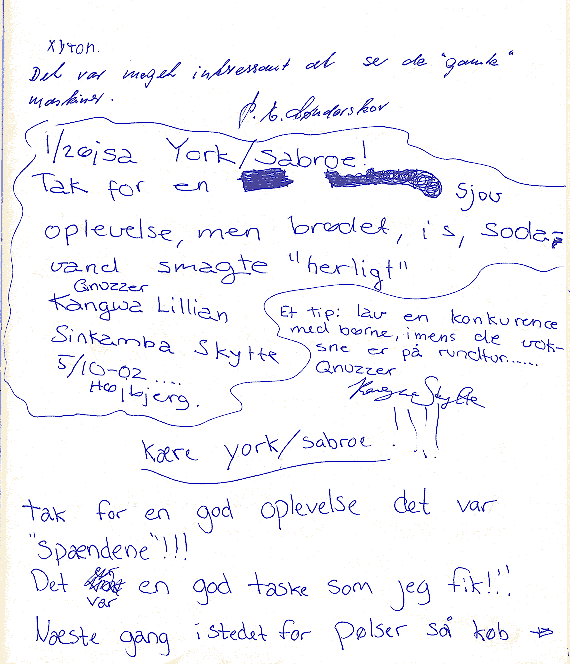 Det var meget intressant at se de "gamle"
maskiner.
York/Sabroe!
Tak for en sjov
oplevelse, men brødet, is, soda-
vand smagte "herligt"
Qnuzzer
Kangwa Lillian
Sinkamba Skytte
5/10-02.....
Højbjerg.
Et tip: lav en konkurence
med børne, imens de vok-
sne er på rundtur......
Qnuzzer
Kangwa Skytte
Kære york/sabroe !!!!
tak for en god oplevelse det var
"spændene"!!!
Det var en god taske som jeg fik!!!
Næste gang istedet for pølser så køb →